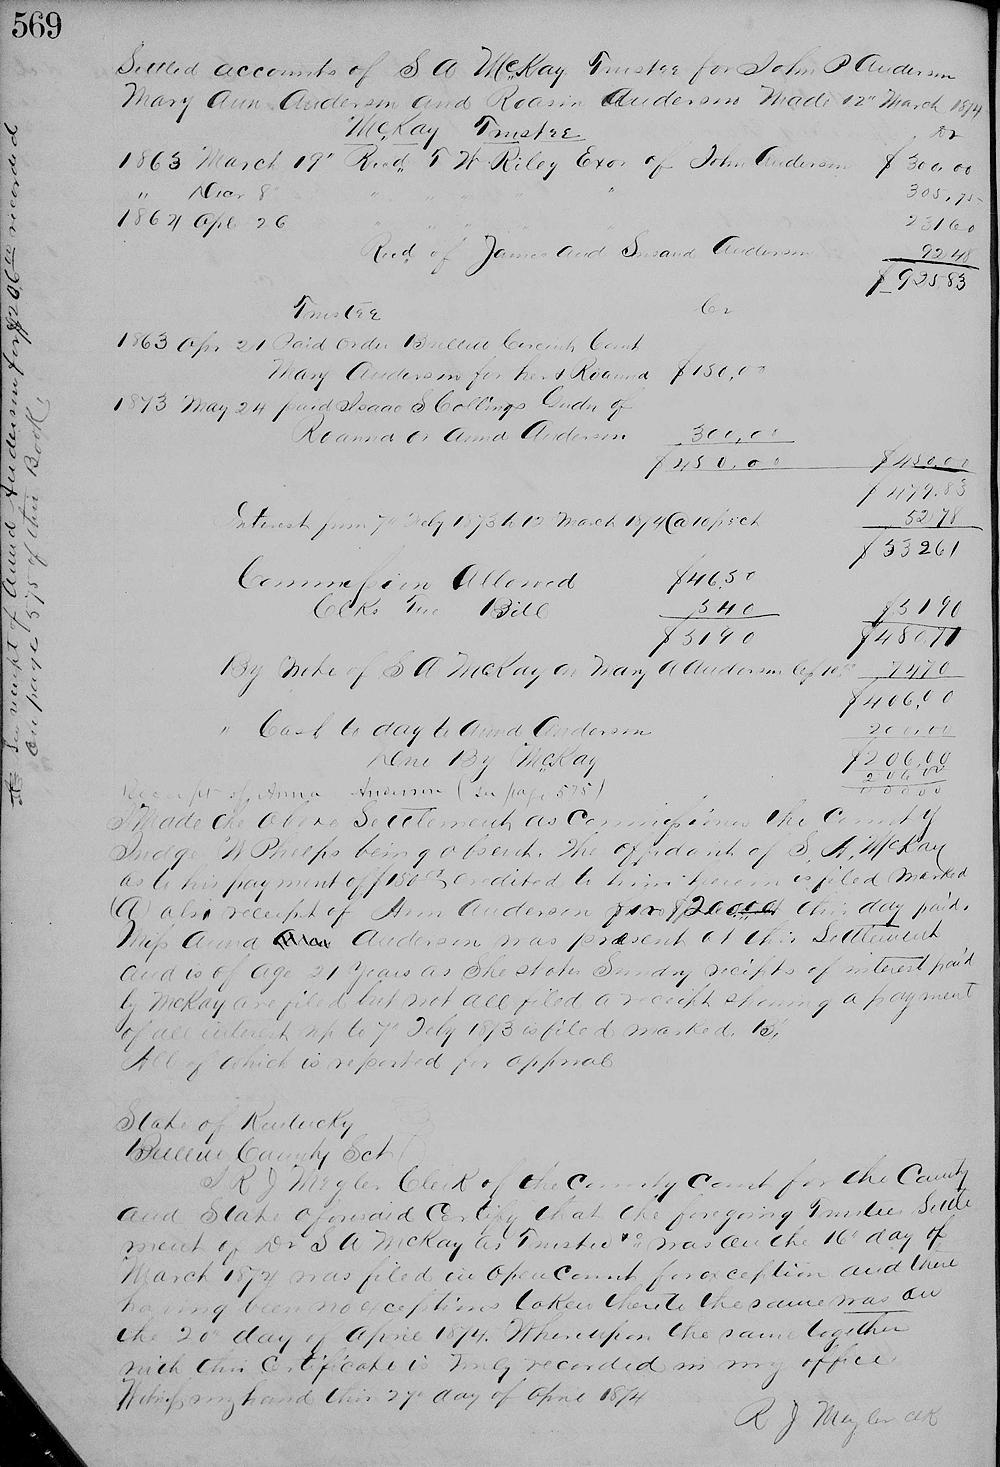 569
Settled accounts of S A McKay Trustee for John P Anderson
Mary Ann Anderson and Roasin Anderson Made 12" March 1874
McKay Trustee Dr
1863 March 19" Recd T W Riley Exor of John Anderson $300.00
" Nov 8 " " " " 305.75
1864 Apl 26 231 60
Recd of James and Susand Anderson 92.48
$925.83
Trustee Cr
1863 Apr 21 Paid order Bullitt Circuit Court
Mary Anderson for her & Roanna $150.00
1873 May 24 paid Isaac S Collings Gudn of
Roanna or Anna Anderson 300.00
$450.00 $450.00
$479.83
Interest from 7" Feby 1873 to 12 March 1874 @ 10 pr ct 52.78
$532 61
Commission Allowed $46.50
Clks Fee Bill 5 40 $51 90
$51 90 $480 71
By Note of S A McKay on Mary A Anderson 74 70
$406.00
" Cash to day to Anna Anderson 200.00
Due By McKay $206.00
206.00
Receipt of Anna Anderson (see page 575) 000 00
I Made the above Settlement as Commissioner the County
Judge W Phelps being absent. The affidavit of S. A. McKay
as to his payment of $150 00 credited to him herein is filed marked
(A) also receipt of Ann Anderson for $200.00 this day paid.
Miss Anna Anderson was present at this Settlement
and is of age 21 Years as she states Sundry reciepts of interest paid
by McKay are filed but not all filed a receipt showing a payment
of all interest up to 7" Feby 1873 is filed marked B,
All of which is reported for approval
State of Kentucky
Bullitt County Sct
I R J Meyler Clerk of the County Court for the County
and State aforesaid Certify that the foregoing Trustees Settle
ment of Dr S A McKay as Trustee &c was on the 16" day of
March 1874 was filed in open Court for exception and there
having been no exceptions taken thereto the same was on
the 20" day of April 1874. Whereupon the same together
with this Certificate is truly recorded in my office
Witness my hand this 27" day of April 1874
R J Meyler clk
receipt of Anna Anderson for $206 00 recorded
on page 575 of this Book